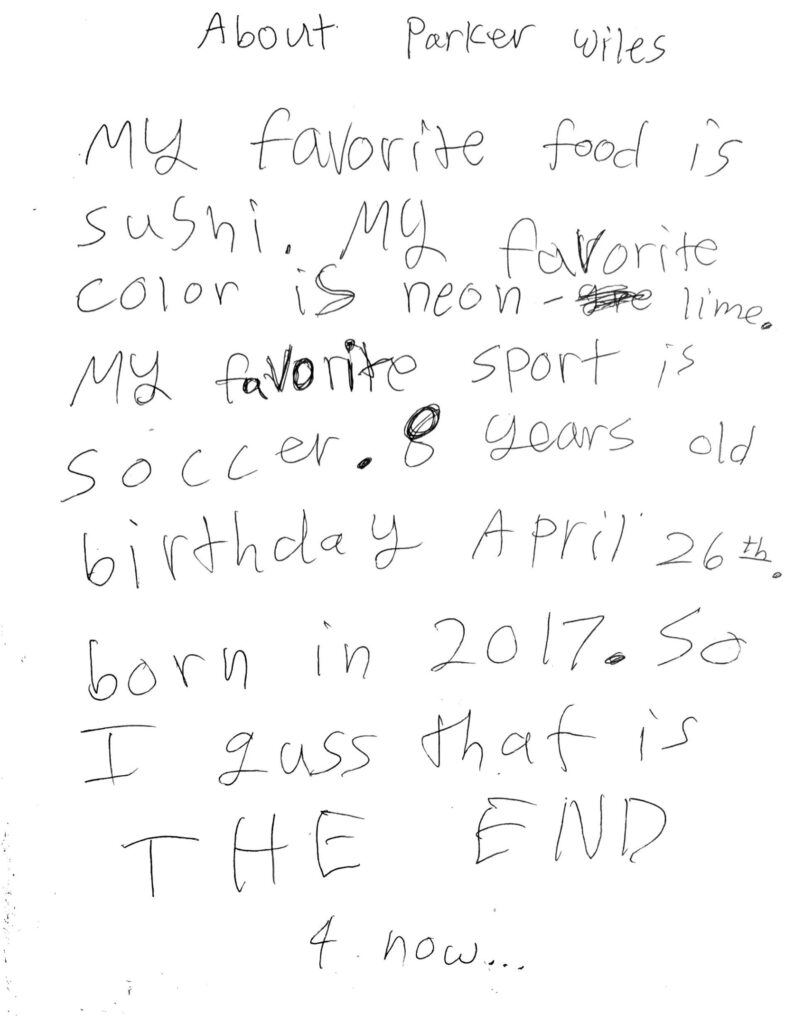 About Parker Wiles
My favorite food is
sushi. My favorite
color is neon - lime.
My favorite sport is
soccer. 8 years old
birthday April 26th.
born in 2017. So
I guss that is
THE END
4 now...